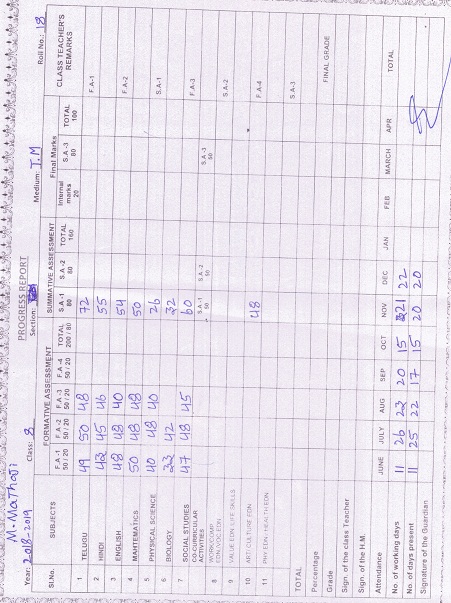 M. Mathaji
PROGRESS REPORT
Year: 2018-2019 Class: 8 Section: Medium: T.M Roll No.: 18
Sl.No. SUBJECTS FORMATIVE ASSESSMENT SUMMATIVE ASSESSMENT Final Marks CLASS TEACHER'S REMARKS
F.A-1 50/20 F.A-2 50/20 F.A-3 50/20 F.A-4 50/20 TOTAL 200/80 S.A-1 80 S.A-2 80 TOTAL 160 Internal marks 20 S.A-3 80 TOTAL 100
1 TELUGU 49 50 48 72 F.A-1
2 HINDI 42 45 46 55
3 ENGLISH 48 48 40 54 F.A-2
4 MAHTEMATICS 50 48 48 50
5 PHYSICAL SCIENCE 40 48 40 26 S.A-1
6 BIOLOGY 32 42 32
7 SOCIAL STUDIES 47 48 45 60 F.A-3
CO-CURRICULAR ACTIVITIES S.A-1 50 S.A-2 50 S.A-3 50
8 WORK/COMP. EDN/VOC.EDN S.A-2
9 VALUE EDN/LIFE SKILLS
10 ART/CULTURE EDN 48 F.A-4
11 PHY.EDN/HEALTH EDN
TOTAL S.A-3
Percentage
Grade FINAL GRADE
Sign. of the class Teacher
Sign. of the H.M.
Attendance JUNE JULY AUG SEP OCT NOV DEC JAN FEB MARCH APR TOTAL
No. of working days 11 26 22 20 15 21 22
No. of days present 11 25 22 17 15 20 20
Signature of the Guardian